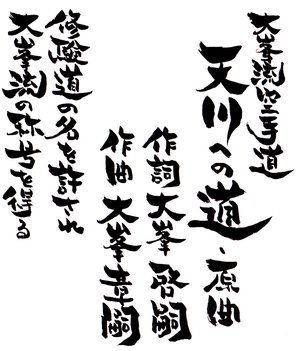 大峯流空手道
天川への道・原曲
作詞大峯啓嗣
作曲大峯章嗣
修験道の名を許され
大峯流の称号を得る